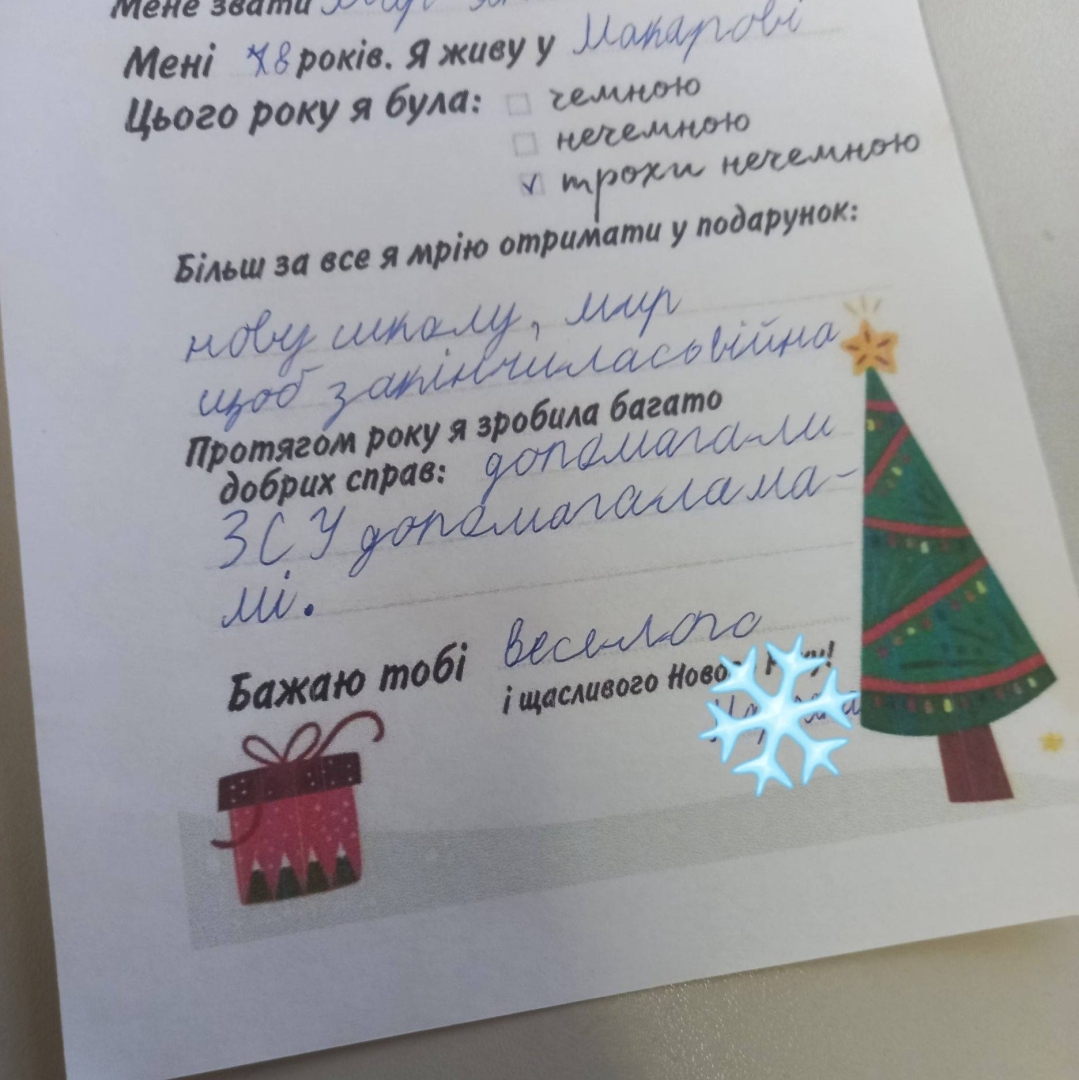 Мене звати
Мені 8 років. Я живу у Макарові
Цього року я була: чемною
нечемною
трохи нечемною
Більш за все я мрію отримати у подарунок:
нову школу, мир
щоб закінчилась війна
Протягом року я зробила багато
добрих справ: допомагали
ЗСУ допомагала ма-
мі.
Бажаю тобі веселого
і щасливого Нового Року!